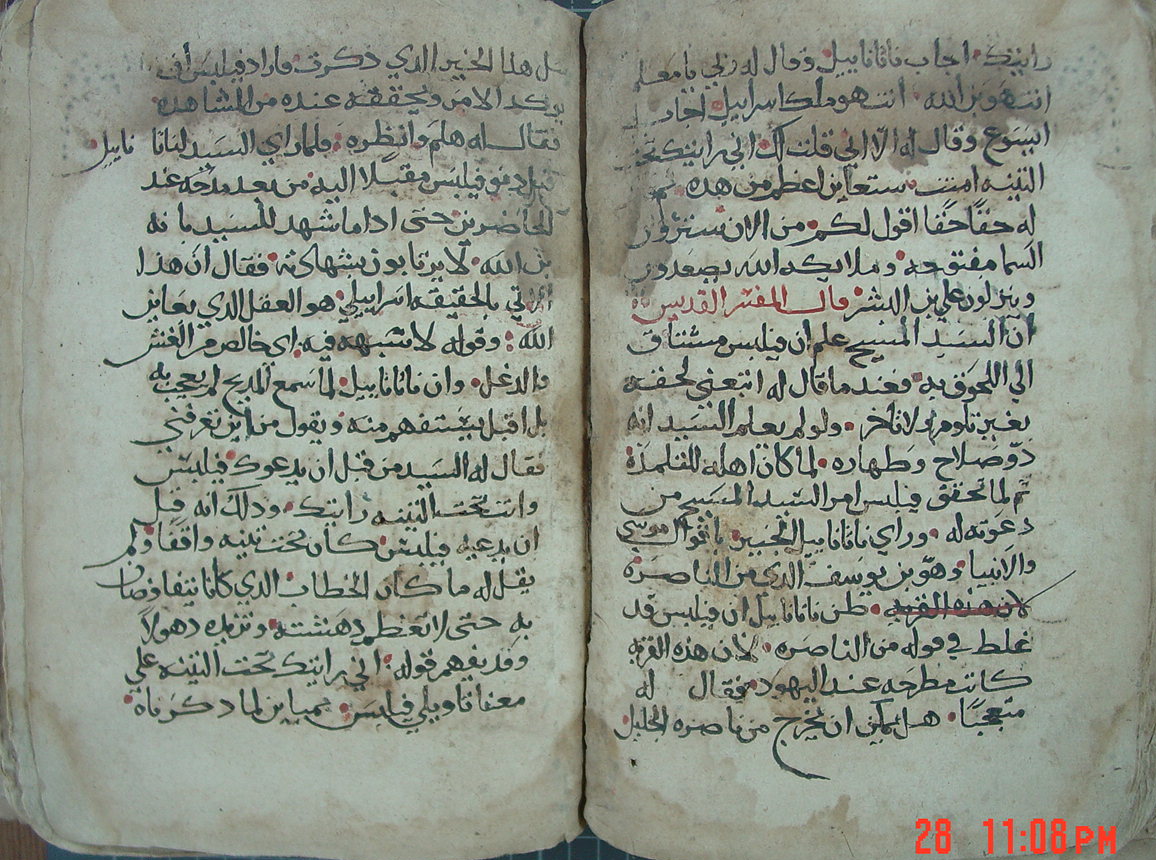 رايتك اجاب ناتاناييل وقال له ربي يا معلم
انت هو بن الله انت هو ملك اسراييل اجاب
ايسوع وقال له الا اني قلت لك اني رايتك تحت
التينه امنت ستعاين اعظم من هذه ثم
له حقًا حقًا اقول لكم من الان سترون
السما مفتوحه وملايكه الله يصعدون
وينزلون علي بن البشر قال المفسر القديس
ان السيد المسيح علم ان فيلبس مشتاق
الي اللحوق به فعند ما قال له اتبعني لحقه
بغير تلوم ولا تاخر ولو لم يعلم السيد انه
ذو صلاح وطهاره لما كان اهله للتلمذة
ثم لما تحقق فيلبس امر السيد المسيح من
دعوته له وراي ناتاناييل الخبير باقوال موسي
والانبيا وهو بن يوسف الذي من الناصره
لان هذه القريه ظن ناتاناييل ان فيلبس قد
غلط في قوله من الناصره لان هذه القريه
كانت مطرحه عند اليهود فقال له
متعجبًا هل يمكن ان يخرج من ناصره الجليل
مثل هذا الخير الذي ذكرت فاراد فيلبس ان
يوكد الامر ويحققه عنده من المشاهده
فقال له هلم وانظره فلما راي السيد لناتا ناييل
قبل دنو فيلبس مقبلًا اليه من بعد مدحه عند
الحاضرين حتى اذا ما شهد للسيد بانه
بن الله لا يرتابون بشهادته فقال ان هذا
الاتي بالحقيقه اسراييلي هو العقل الذي يعاين
الله وقوله لا غش فيه اي خالص من الغش
والدغل وان ناتاناييل لما سمع المديح لم يعجب به
بل اقبل يستفهم منه ويقول من اين تعرفني
فقال له السيد من قبل ان يدعوك فيلبس
وانت تحت التينه رايتك وذلك انه قبل
ان يدعيه فيلبس كان تحت تينه واقفًا ولم
يقل له ما كان الخطاب الذي كانا يتفاوضان
به حتى لا تعظم دهشته وتزيده ذهولًا
وقد يفهم قوله اني رايتك تحت التينه علي
معنا تاويلي فيلبس مباين لما ذكرناه
28 11:08 PM